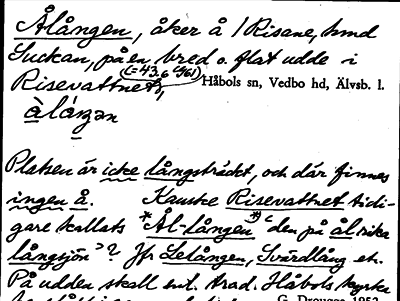 Ålången, åker å 1 Risane, hmd
Luckan, på en bred o. flat udde i
(=43,6 i 961)
Risevattnet, Håbols sn, Vedbo hd, Älvsb. l.
Platsen är icke långsträckt, och där finnes
ingen å. Kanske Risevattnet tidi-
gare kallats *Ål-lången "den på ål rika
långsjön"? Jfr Lelången, Svärdlång etc.
På udden skall enl. trad. Håbols kyrka
G. Drougge 1952